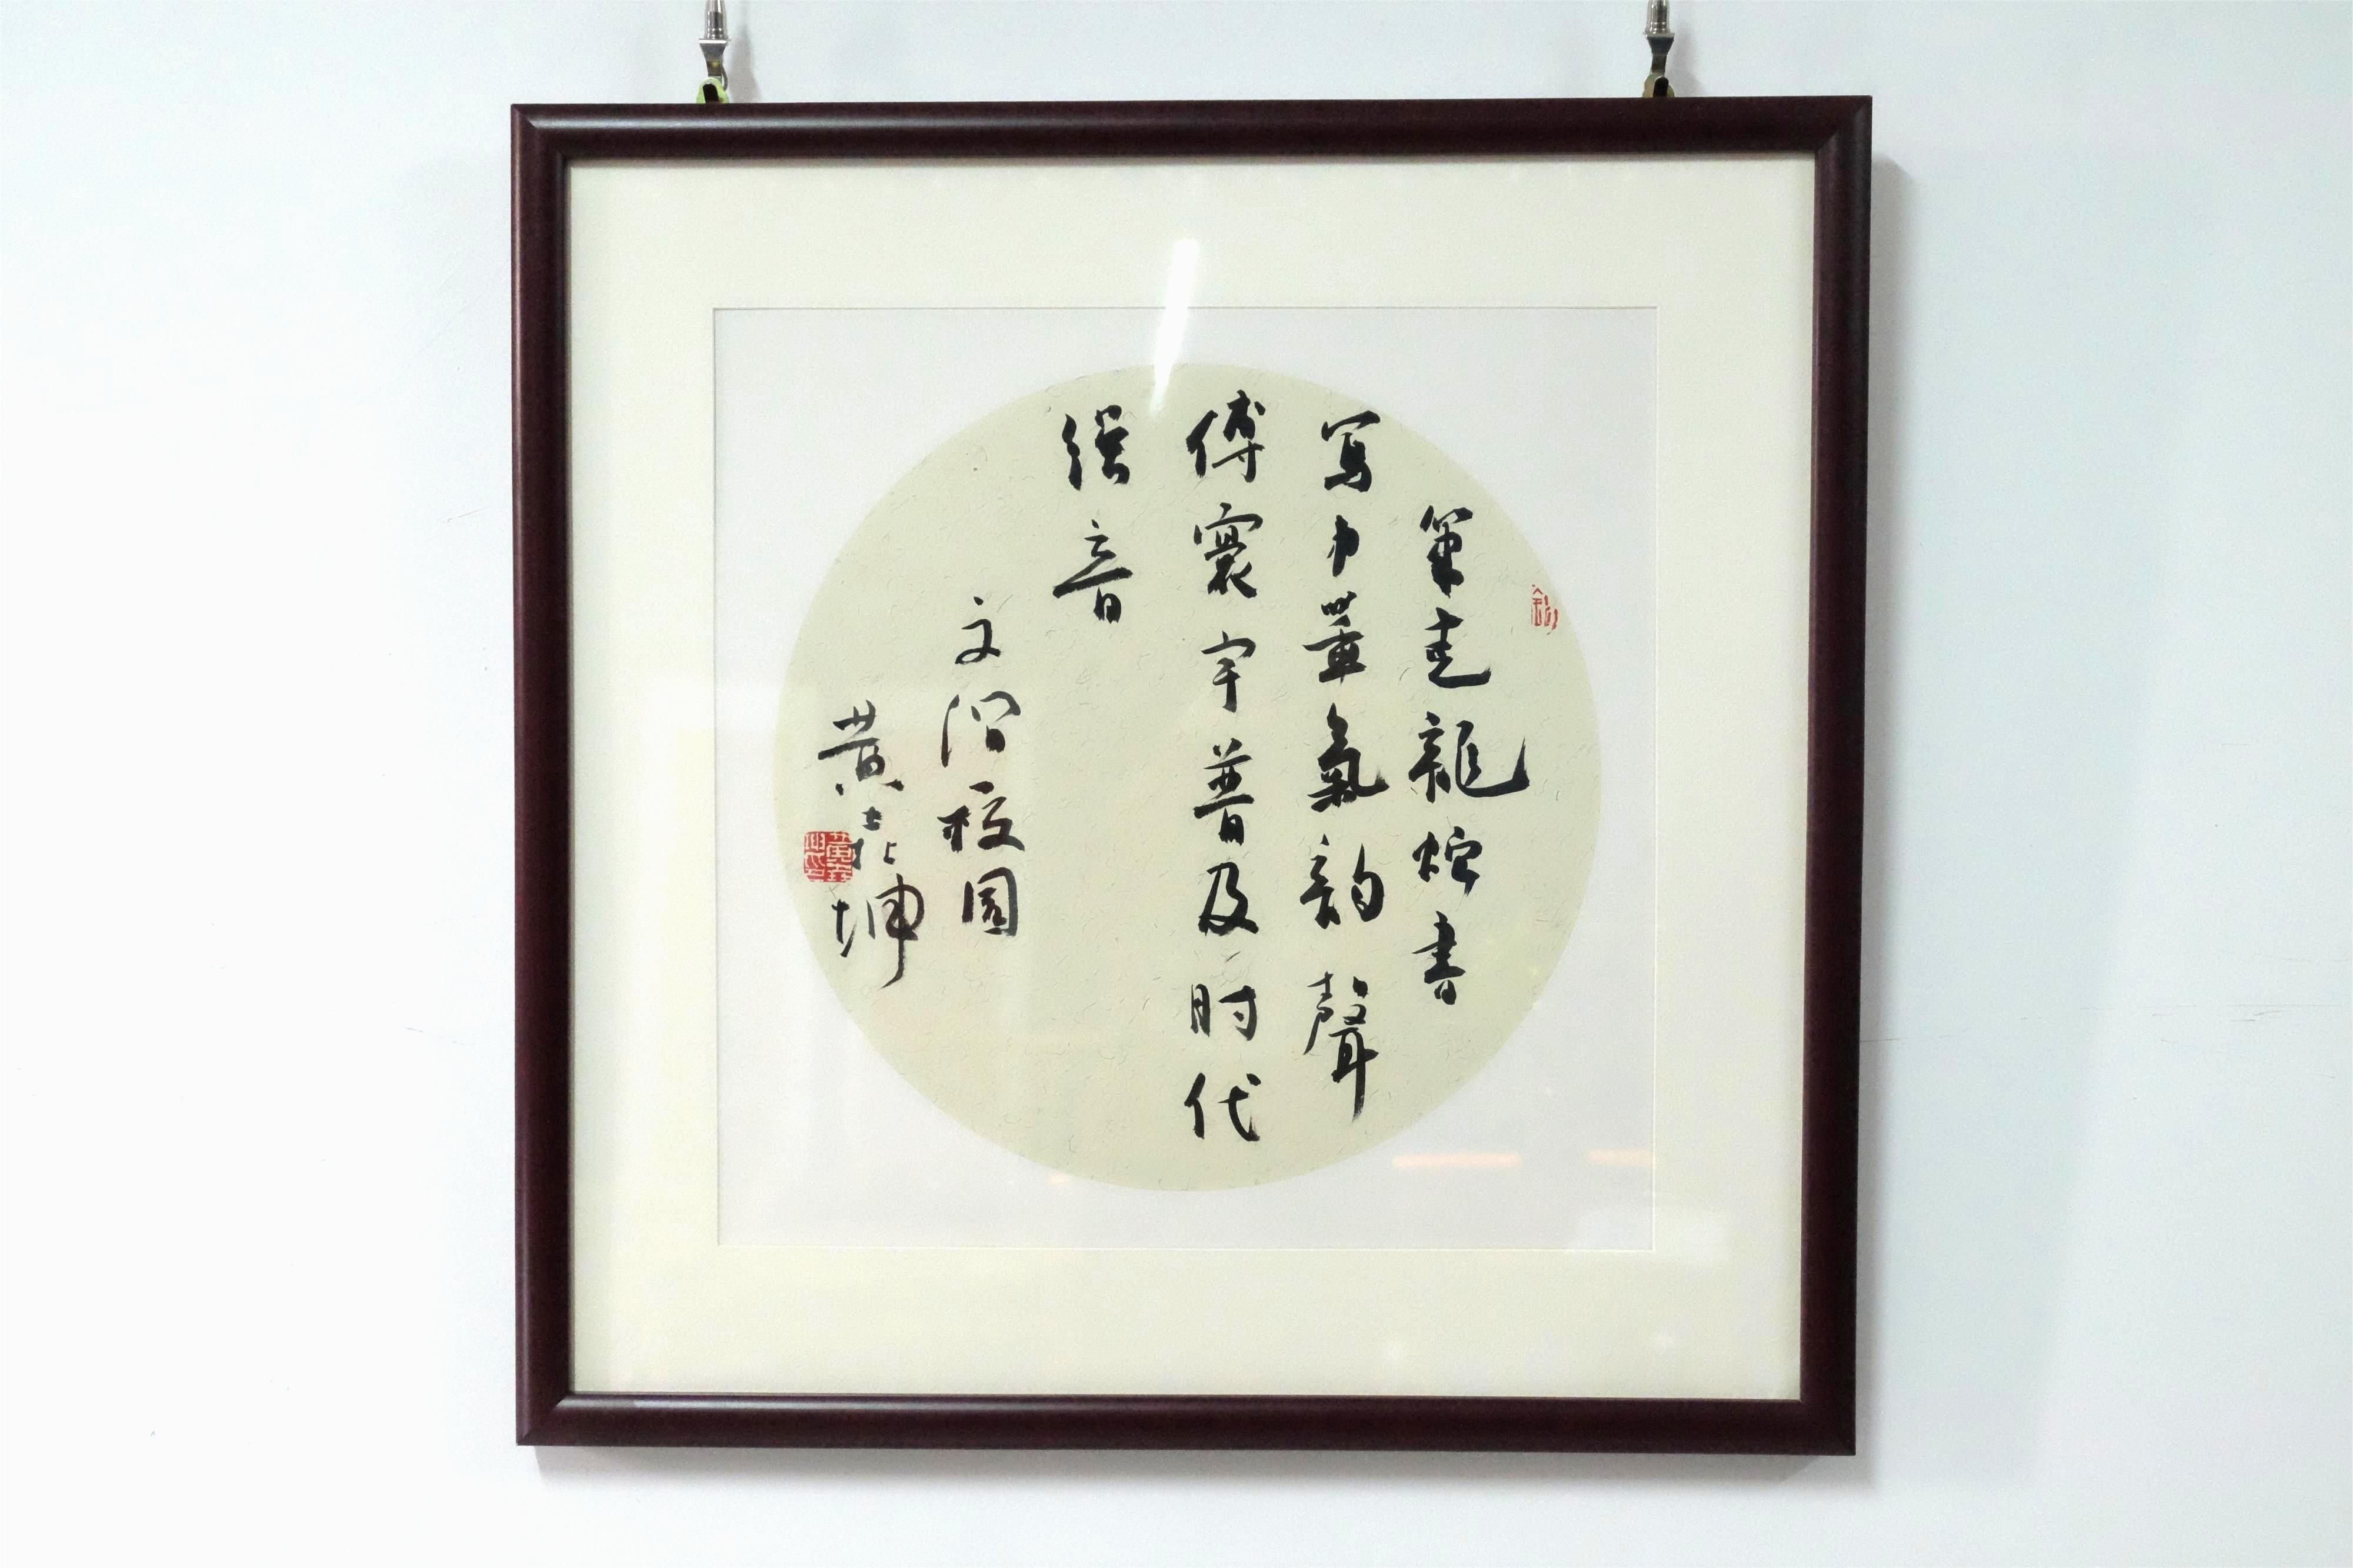 筆走龍蛇書
寫中華氣韵聲
傳寰宇普及时代
强音
文润校園
黄坤